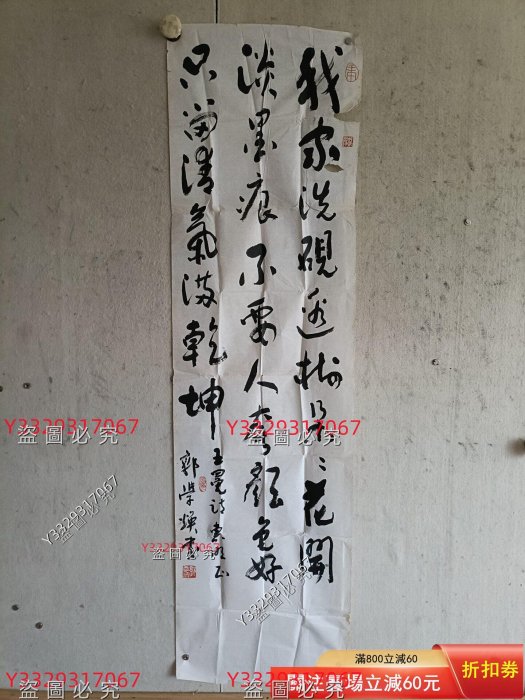 我家洗硯邊樹個〻花開
淡墨痕不要人誇顏色好
只留清氣滿乾坤
王冕詩
郭
Y3329317067
盜圖必究
Y3329317067
盜圖必究
Y3329317067
盜圖必究
Y3329317067
盜圖必究
Y3329317067
盜圖必究
Y3329317067
盜圖必究
Y3329317067
盜圖必究
滿800立減60
折扣券
關注賣場立減60元